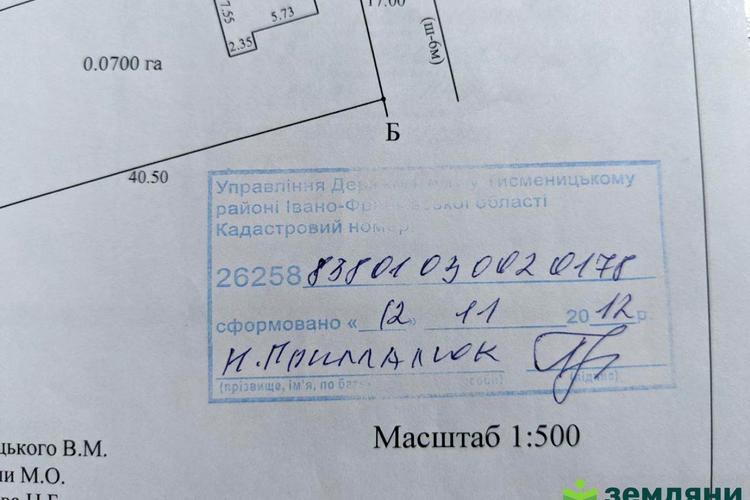 7.55
5.73
2.35
17.00
(ш-6м)
0.0700 га
Б
40.50
Управління Тисменицькому
районі Івано-Франківської області
Кадастровий номер
26258 83801 03 002 0178
сформовано « 12 » 11 2012 р.
(прізвище, ім'я, по
Масштаб 1:500
цького В.М.
ни М.О.
земляни